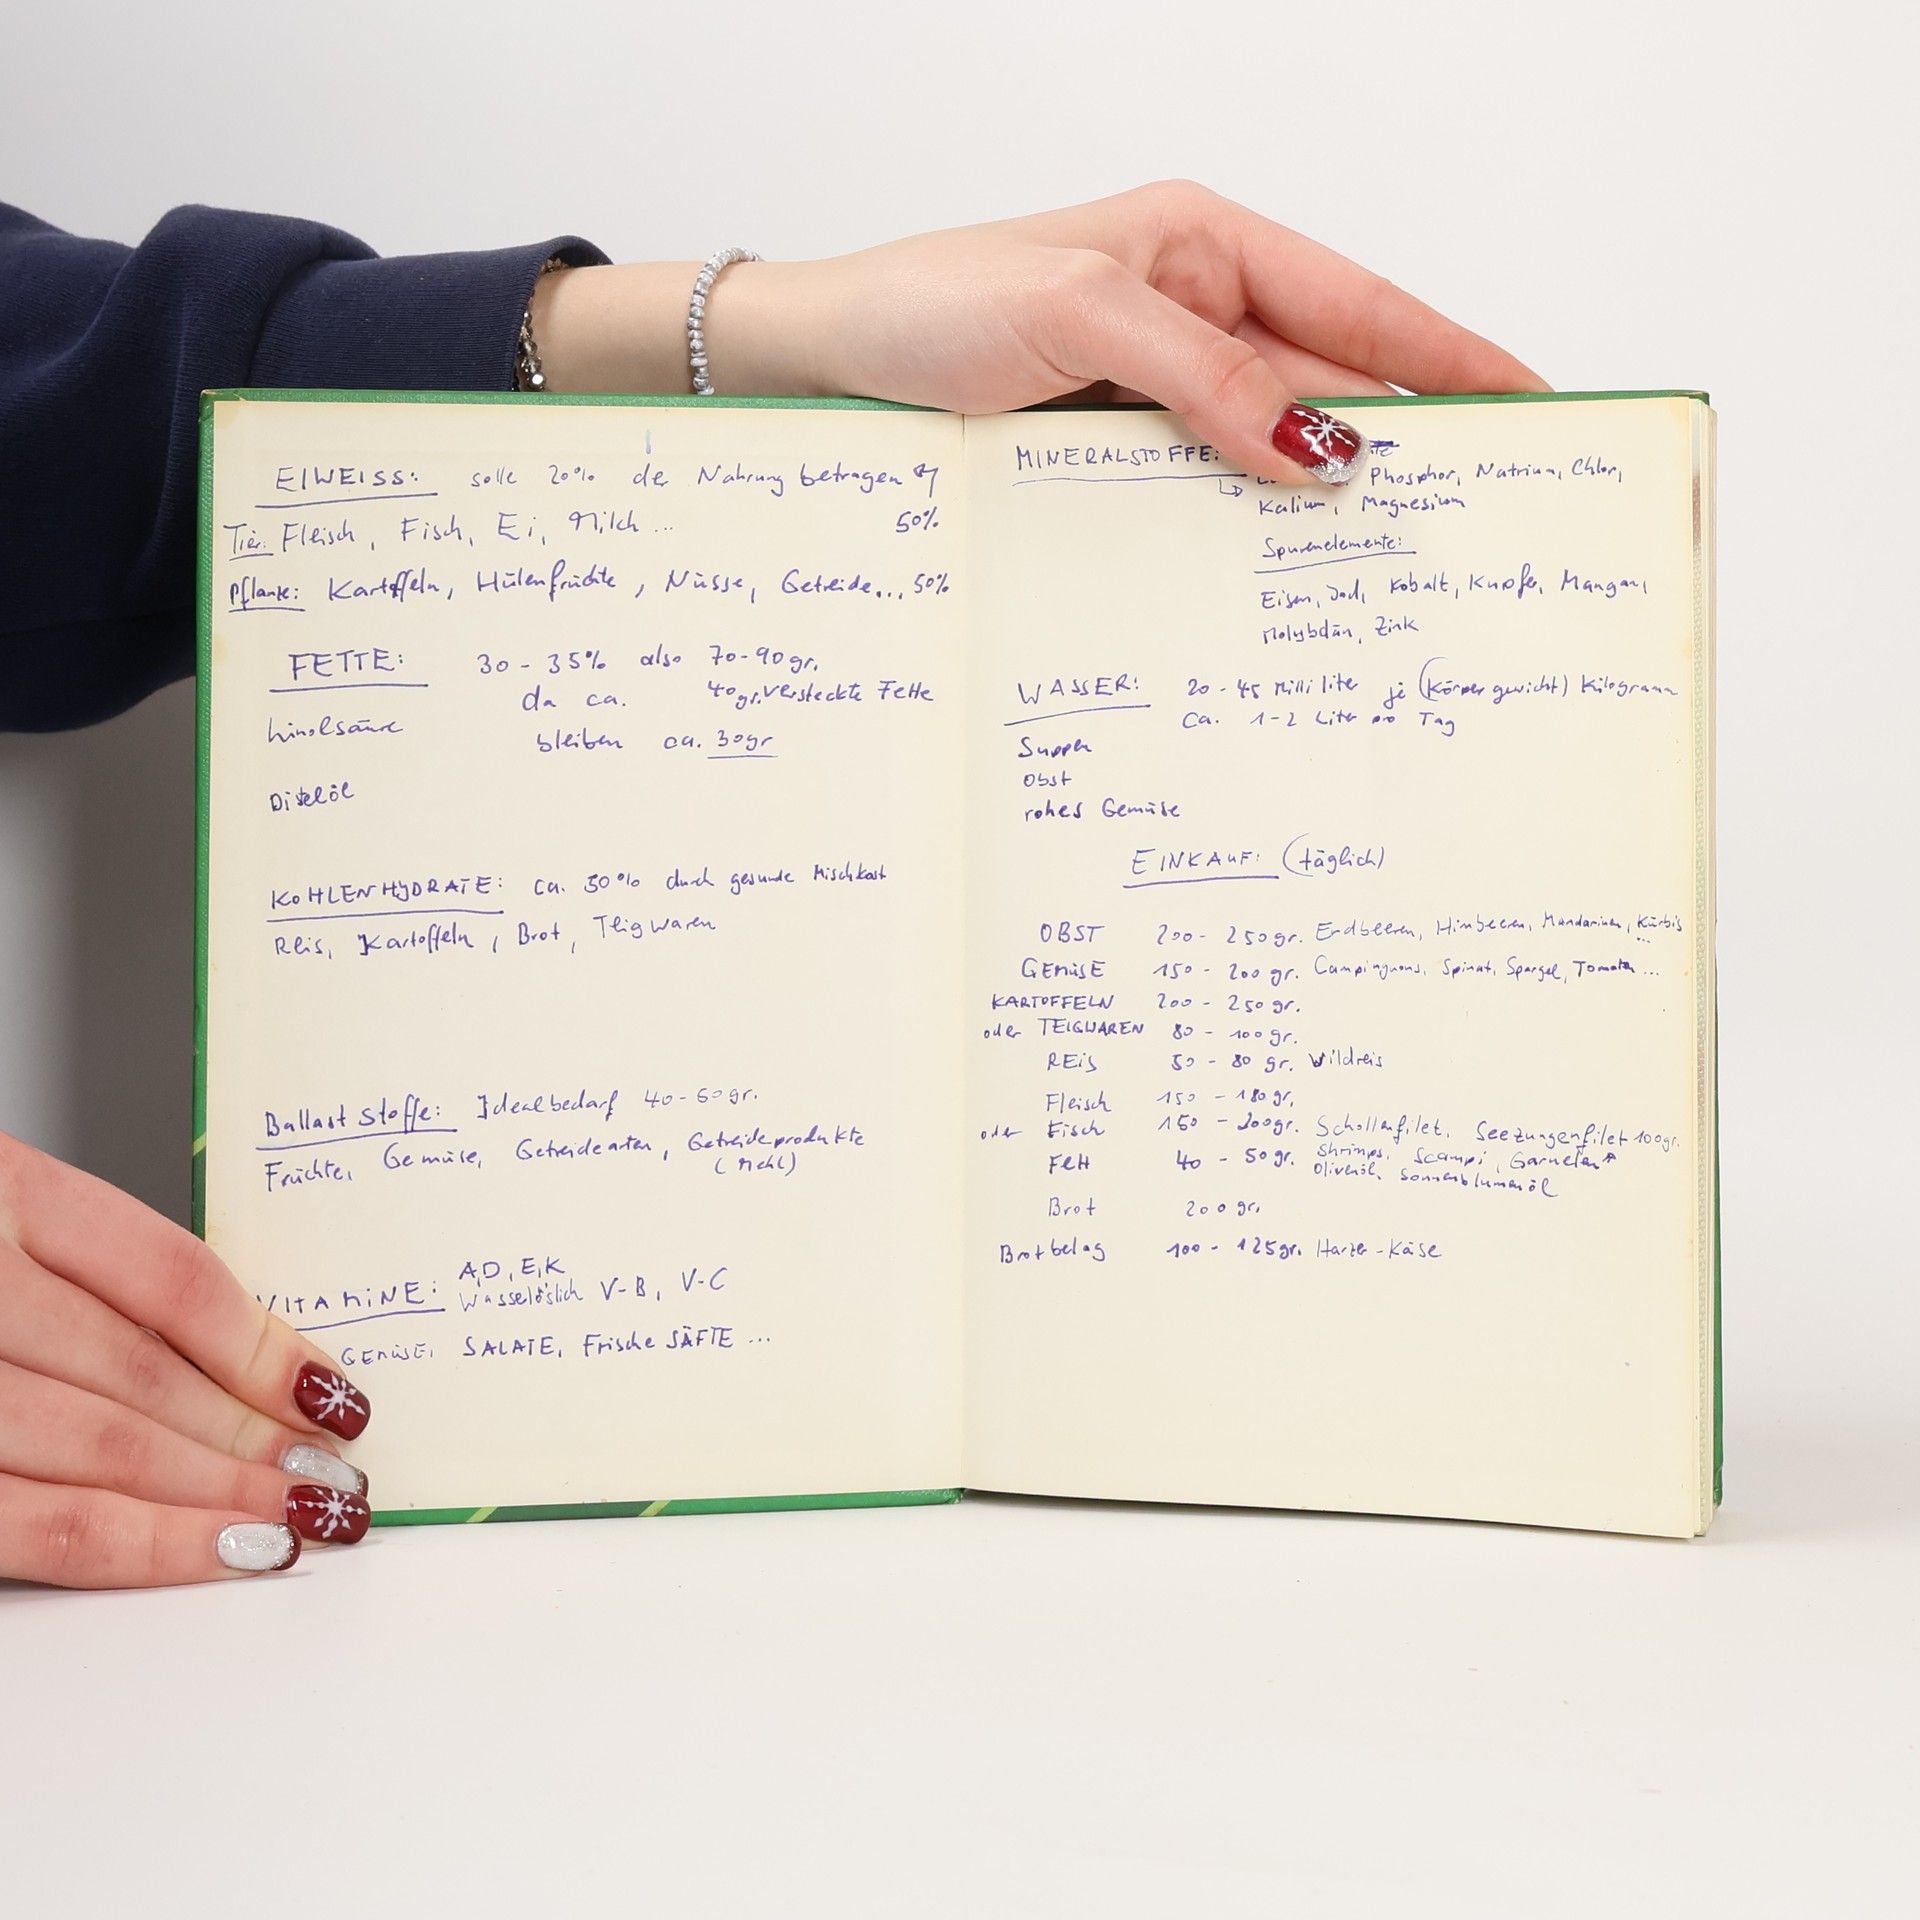 EIWEISS: solle 20% der Nahrung betragen
Tier: Fleisch, Fisch, Ei, Milch ... 50%
Pflanze: Kartoffeln, Hülenfrüchte, Nüsse, Getreide... 50%
FETTE: 30 - 35% also 70-90gr.
da ca. 40gr. versteckte Fette
Linolsäure bleiben ca. 30gr
Distelöl
KOHLENHYDRATE: ca. 50% durch gesunde Mischkost
Reis, Kartoffeln, Brot, Teigwaren
Ballaststoffe: Idealbedarf 40-60gr.
Früchte, Gemüse, Getreidearten, Getreideprodukte
(Mehl)
VITAMINE: A,D,E,K
Wasserlöslich V-B, V-C
GEMÜSE, SALATE, Frische SÄFTE ...
MINERALSTOFFE:
Phosphor, Natrium, Chlor,
Kalium, Magnesium
Spurenelemente:
Eisen, Jod, Kobalt, Kupfer, Mangan,
Molybdän, Zink
WASSER: 20 - 45 Milliliter je (Körpergewicht) Kilogramm
ca. 1-2 Liter pro Tag
Suppen
Obst
rohes Gemüse
EINKAUF: (täglich)
OBST 200 - 250gr. Erdbeeren, Himbeeren, Mandarinen, Kürbis ...
GEMÜSE 150 - 200 gr. Campingnons, Spinat, Spargel, Tomaten ...
KARTOFFELN 200 - 250 gr.
oder TEIGWAREN 80 - 100 gr.
REIS 50 - 80 gr. Wildreis
Fleisch 150 - 180gr.
oder Fisch 150 - 200gr. Schollenfilet, Seezungenfilet 100gr.
Shrimps, Scampi, Garnelen
Fett 40 - 50gr. Olivenöl, Sonnenblumenöl
Brot 200 gr.
Brotbelag 100 - 125gr. Harzer-Käse